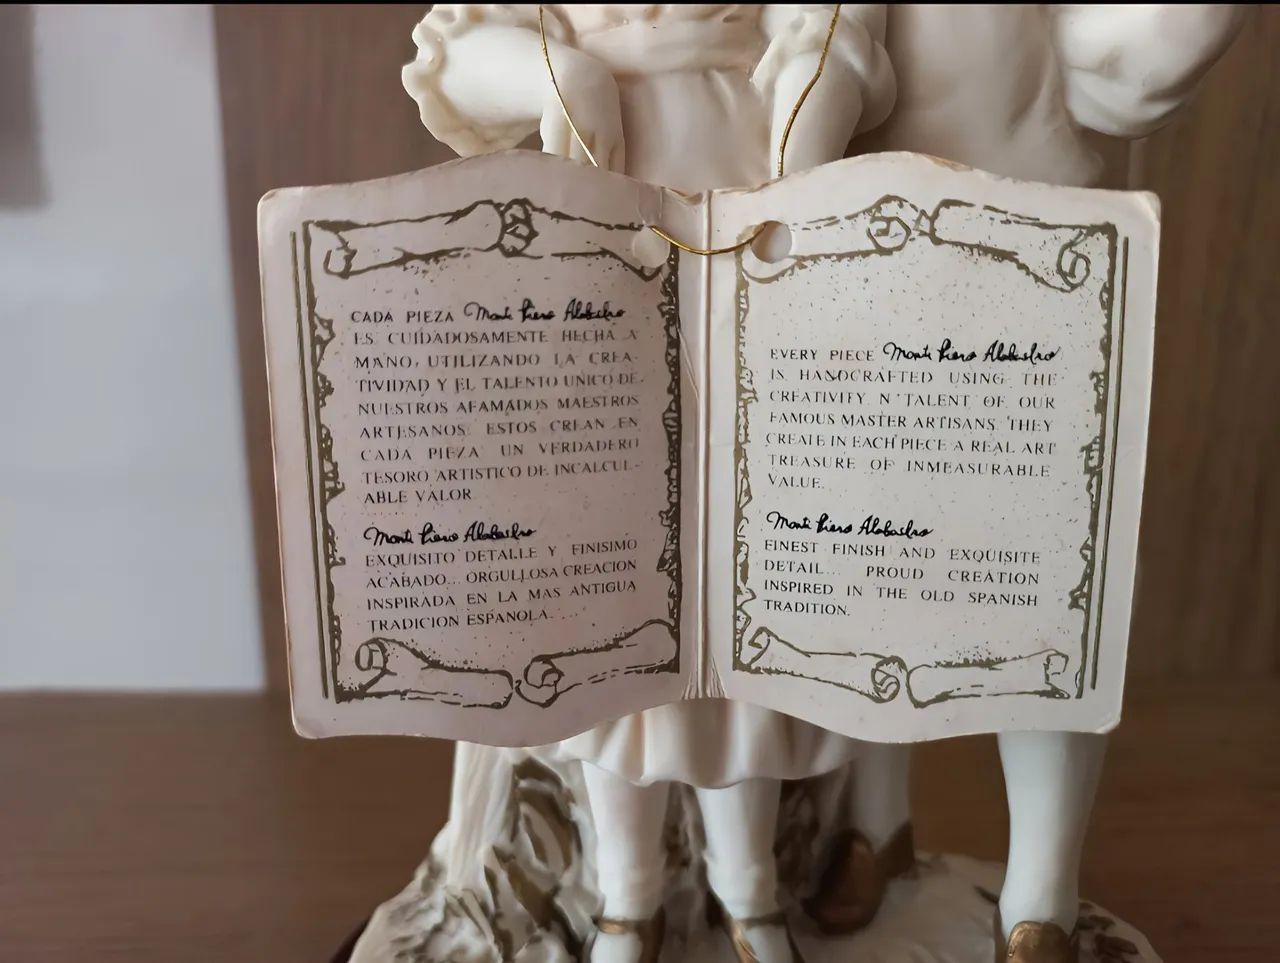 CADA PIEZA Monti Piero Alabastro
ES CUIDADOSAMENTE HECHA A
MANO, UTILIZANDO LA CREA-
TIVIDAD Y EL TALENTO UNICO DE
NUESTROS AFAMADOS MAESTROS
ARTESANOS. ESTOS CREAN EN
CADA PIEZA UN VERDADERO
TESORO ARTISTICO DE INCALCUL-
ABLE VALOR
Monti Piero Alabastro
EXQUISITO DETALLE Y FINISIMO
ACABADO... ORGULLOSA CREACION
INSPIRADA EN LA MAS ANTIGUA
TRADICION ESPANOLA....
EVERY PIECE Monti Piero Alabastro
IS HANDCRAFTED USING THE
CREATIVITY N' TALENT OF OUR
FAMOUS MASTER ARTISANS. THEY
CREATE IN EACH PIECE A REAL ART
TREASURE OF INMEASURABLE
VALUE.
Monti Piero Alabastro
FINEST FINISH AND EXQUISITE
DETAIL... PROUD CREATION
INSPIRED IN THE OLD SPANISH
TRADITION.